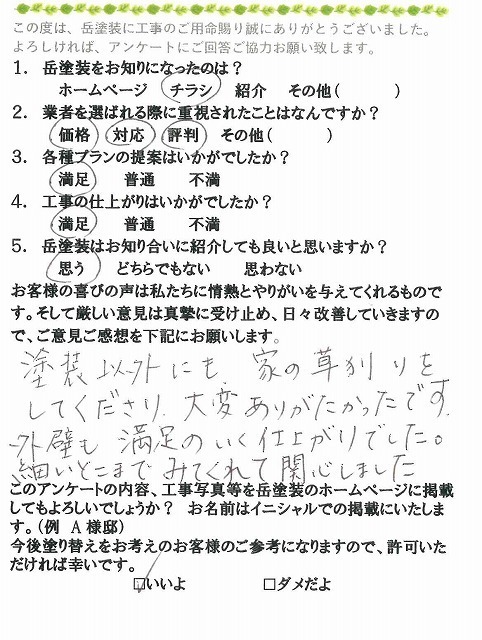 この度は、岳塗装に工事のご用命賜り誠にありがとうございました。
よろしければ、アンケートにご回答ご協力お願い致します。
1. 岳塗装をお知りになったのは?
ホームページ チラシ 紹介 その他( )
2. 業者を選ばれる際に重視されたことはなんですか?
価格 対応 評判 その他( )
3. 各種プランの提案はいかがでしたか?
満足 普通 不満
4. 工事の仕上がりはいかがでしたか?
満足 普通 不満
5. 岳塗装はお知り合いに紹介しても良いと思いますか?
思う どちらでもない 思わない
お客様の喜びの声は私たちに情熱とやりがいを与えてくれるもので
す。そして厳しい意見は真摯に受け止め、日々改善していきますの
で、ご意見ご感想を下記にお願いします。
塗装以外にも 家の草刈りを
してくださり、大変ありがたかったです。
外壁も 満足のいく仕上がりでした。
細いとこまで みてくれて 関心しました
このアンケートの内容、工事写真等を岳塗装のホームページに掲載
してもよろしいでしょうか? お名前はイニシャルでの掲載にいたしま
す。(例 A 様邸)
今後塗り替えをお考えのお客様のご参考になりますので、許可いた
だければ幸いです。
□いいよ □ダメだよ